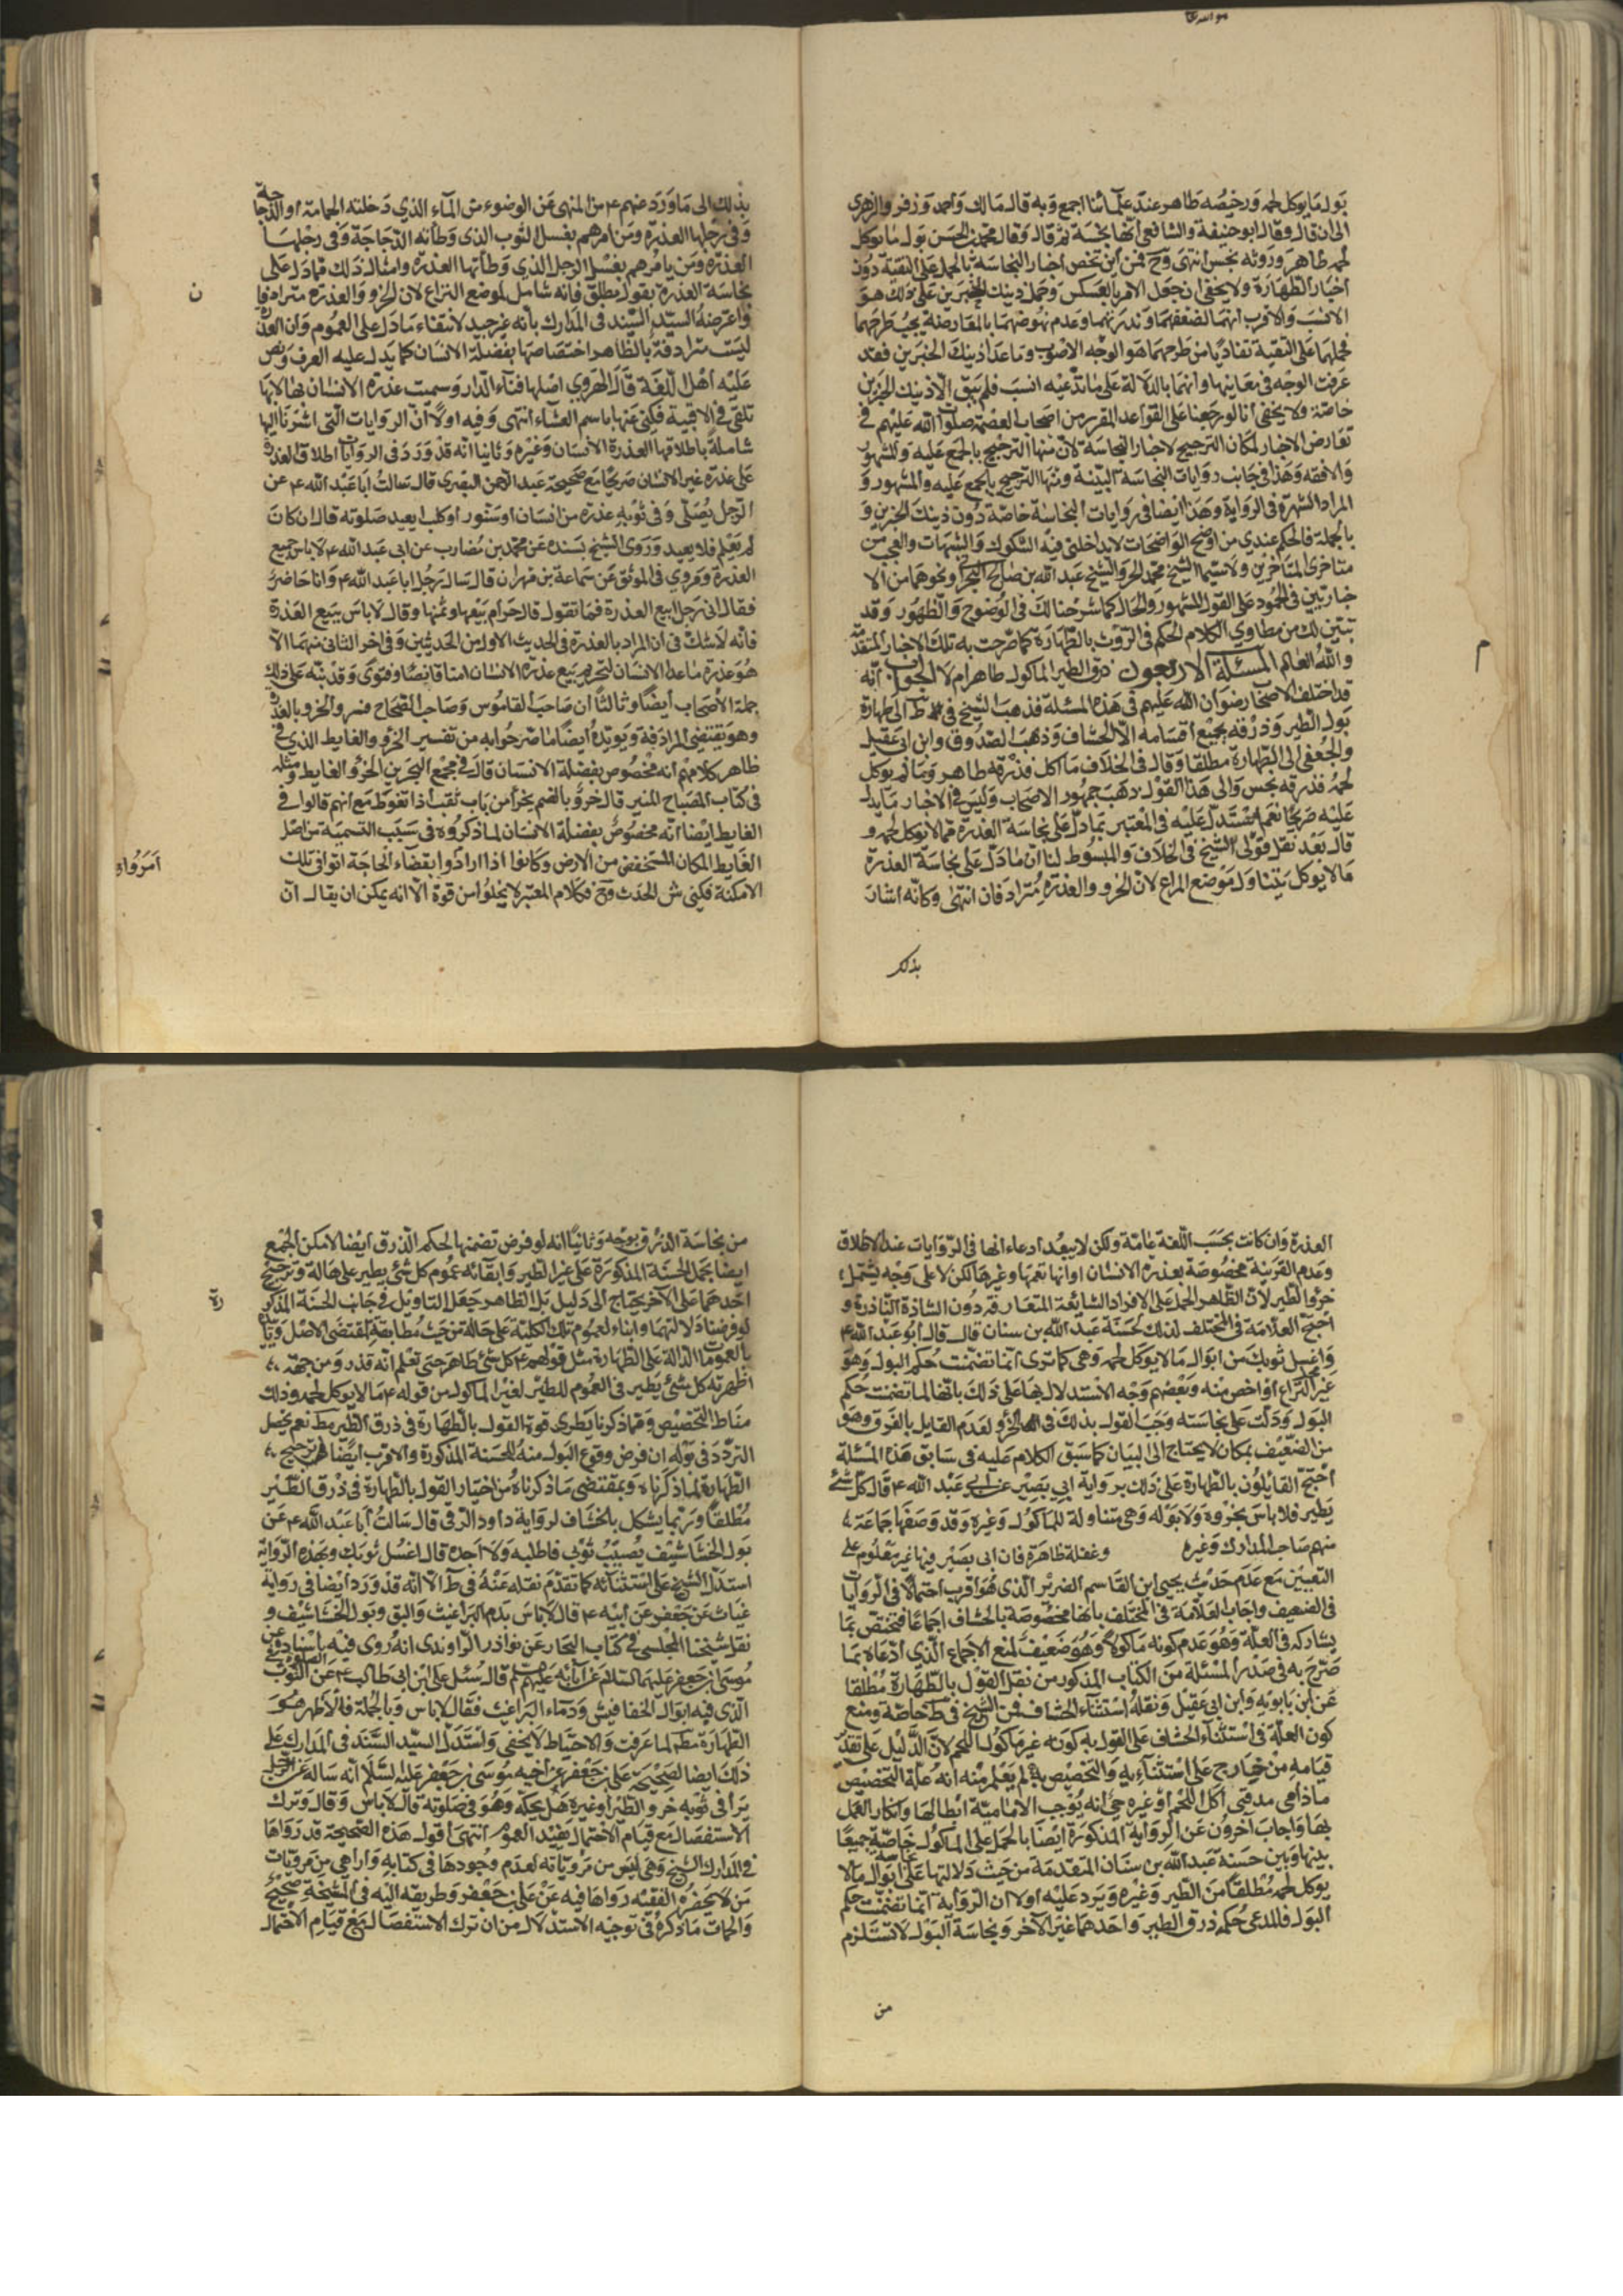 بول ما يوكل لحمه ورخيصه طاهر عند علمائنا اجمع وبه قال مالك واحمد وزفر والزهرى
الى ان قال وقال ابو حنيفة والشافعى انها نجسة ثم قال وقال محمد بن الحسن بول ما يوكل
لحمه طاهر وروثه نجس انتهى وح فمن اين تختص اخبار النجاسة بالحمل على التقية دون
اخبار الطهارة ولا يخفى ان جعل الامر بالعكس وحمل ذينك الخبرين على ذلك هو
الانسب والاقرب انهما لضعفهما وندرتهما وعدم نهوضهما بالمعارضة يجب طرحهما
فحملهما على التقية تفاديا من طرحهما هو الوجه الاصوب وما عدا ذينك الخبرين فقد
عرفت الوجه فى معانيها وانها بالدلالة على ما ندعيه انسب فلم يبق الا ذينك الخبرين
خاصة ولا يخفى انا لو رجعنا على القواعد المقرر من اصحاب العصمة صلوات الله عليهم فى
تعارض الاخبار لمكان الترجيح لاخبار النجاسة لان منها الترجيح بالجمع عليه والمشهور
والافقه وهذا فى جانب روايات النجاسة البينة ومنها الترجيح بالجمع عليه والمشهور و
المراد الشهرة فى الرواية وهذا ايضا فى روايات النجاسة خاصة دون ذينك الخبرين و
بالجملة فالحكم عندى من اوضح الواضحات لا يداخلنى فيه الشكوك والشبهات والعجب من
متاخرى المتاخرين ولا سيما الشيخ محمد الحر والشيخ عبد الله بن صالح البحرانى ونحوهما من الا
خباريين فى الجمود على القول المشهور والحال كما شرحنا لك فى الوضوح والظهور وقد
تبين لك من مطاوى الكلام الحكم فى الروث بالطهارة كما صرحت به تلك الاخبار المتقدمة
والله العالم المسئلة الاربعون ذرق الطير الماكول طاهر ام لا الجواب انه
قد اختلف الاصحاب رضوان الله عليهم فى هذه المسئلة فذهب الشيخ فى ط الى طهارة
بول الطير وذرقه بجميع اقسامه الا الخشاف وذهب الصدوق وابن ابى عقيل
والجعفى الى الطهارة مطلقا وقال فى الخلاف ما اكل فذرقه طاهر وما لم يوكل
لحمه فذرقه نجس والى هذا القول ذهب جمهور الاصحاب وليس فى الاخبار ما يدل
عليه صريحا نعم استدل عليه فى المعتبر بما دل على نجاسة العذرة مما لا يوكل لحمه و
قال بعد نقل قولى الشيخ فى الخلاف والمبسوط لنا ان ما دل على نجاسة العذرة
مما لا يوكل يتناول موضع النزاع لان الخرو والعذرة مترادفان انتهى وكانه اشار
بذلك
بذلك الى ما ورد عنهم ع من النهى عن الوضوء من الماء الذى دخلته الحمامة او الدجاجة
وفى رجلها العذرة ومن امرهم بغسل الثوب الذى وطأته الدجاجة وفى رجلها
العذرة ومن يامرهم بغسل الرجل الذى وطأتها العذرة وامثال ذلك فما دل على
نجاسة العذرة بقول مطلق فانه شامل لموضع النزاع لان الخرو والعذرة مترادفا
ن
واعترضه السيد السند فى المدارك بانه غير جيد لانتفاء ما دل على العموم وان العذرة
ليست مترادفة بالظاهر اختصاصها بفضلة الانسان كما يدل عليه العرف ونص
عليه اهل اللغة قال الهروى اصلها فناء الدار وسميت عذرة الانسان بها لانها
تلقى فى الافنية فكنى عنها باسم الفناء انتهى وفيه اولا ان الروايات التى اشرنا اليها
شاملة باطلاقها العذرة الانسان وغيره وثانيا انه قد ورد فى الروايات اطلاق العذرة
على عذرة غير الانسان صريحا مع صحيحة عبد الرحمن البصرى قال سالت ابا عبد الله ع عن
الرجل يصلى وفى ثوبه عذرة من انسان او سنور او كلب ايعيد صلوته قال ان كان
لم يعلم فلا يعيد وروى الشيخ بسنده عن محمد بن مضارب عن ابى عبد الله ع لا باس ببيع
العذرة ومروى فى الموثق عن سماعة بن مهران قال سال رجل ابا عبد الله ع وانا حاضر
فقال انى رجل ابيع العذرة فما تقول قال حرام بيعها وثمنها وقال لا باس ببيع العذرة
فانه لا شك فى ان المراد بالعذرة فى الحديث الاول من الحديثين وفى اخر الثانى منهما الا
هو عذرة ما عدا الانسان لتحريم بيع عذرة الانسان امتا قا نصا وفتوى وقد نبه على ذلك
جملة الاصحاب ايضا وثالثا ان صاحب القاموس وصاحب الصحاح فسر والخرو بالعذرة
وهو يقتضى المرادفة ويؤيده ايضا ما صرحوا به من تفسير الخرو والغايط الذى فى
ظاهر كلامهم انه مخصوص بفضلة الانسان قال فى مجمع البحرين الخرؤ الغايط ومثله
فى كتاب المصباح المنير قال خرؤ بالضم يخرأ من باب تعب اذا تغوط مع انهم قالوا فى
الغايط ايضا انه مخصوص بفضلة الانسان لما ذكروه فى سبب التسمية من اصل
الغايط المكان المنخفض من الارض وكانوا اذا ارادوا بقضاء الحاجة اتوا فى تلك
الامكنة فكنى من الحدث وح فكلام المعتبر لا يخلوا من قوة الا انه يمكن ان يقال ان
العذرة وان كانت بحسب اللغة عامة ولكن لا يبعد ادعاء انها فى الروايات عند الاطلاق
وعدم القرينة مخصوصة بعذرة الانسان او انها تعمها وغيرها لكن لا على وجه يشتمل
خرؤ الطير لان الظاهر الحمل على الافراد الشائعة المتعارفة دون الشاذة النادرة و
احتج العلامة فى المختلف لذلك بحسنة عبد الله بن سنان قال قال ابو عبد الله ع
واغسل ثوبك من ابوال ما لا يوكل لحمه وهى كما ترى انما تضمنت حكم البول وهو
غير النزاع او اخص منه وبعضهم وجه الاستدلال بها على ذلك بانها لما تضمنت حكم
البول ودلت على نجاسته وجب القول بذلك فى الخرؤ لعدم القايل بالفرق وهو
من الضعيف بمكان لا يحتاج الى البيان كما سبق الكلام عليه فى سابق هذا المسئلة
احتج القايلون بالطهارة على ذلك برواية ابى بصير عن ابى عبد الله ع قال كل شئ
يطير فلا باس بخروه ولا بوله وهى متناولة للماكول وغيره وقد وصفها جماعة
منهم صاحب المدارك وغيره وغفلة ظاهرة فان ابى بصير فيها غير معلوم على
التعيين مع عدم حدث يحيى ابن القاسم الضرير الذى هو اقرب احتمالا فى الروايات
فى الضعيف واجاب العلامة فى المختلف بانها مخصوصة بالخشاف اجماعا فتختص بما
يشاركه فى العلة وهو عدم كونه ماكولا وهو ضعيف لمنع الاجماع الذى ادعاه بما
صرح به فى صدر المسئلة من الكتاب المذكور من نقل القول بالطهارة مطلقا
عن ابن بابويه وابن ابى عقيل ونقله استثناء الخشاف من الشيخ فى ط خاصة ومنع
كون العلة فى استثناء الخشاف على القول به كونه غير ماكول اللحم لان الدليل على تقدير
قيامه من خارج على استثنائه والتخصيص به لم يعلم منه انه علة التخصيص
ماذا هى مدمى اكل اللحم او غيره حتى انه يوجب الامامية ابطالها وانكار العمل
بها واجاب آخرون عن الرواية المذكورة ايضا بالحمل على الماكول خاصة جمعا
بينها وبين حسنة عبد الله بن سنان المتقدمة من حيث دلالتها على ابوال ما لا
يوكل لحمه مطلقا من الطير وغيره ويرد عليه اولا ان الرواية انما تضمنت حكم
البول فالمدعى حكم ذرق الطير واحدهما غير الآخر ونجاسة البول لا تستلزم
من
من نجاسة الذرق بوجه وثانيا انه لو فرض تضمنها لحكم الذرق ايضا لامكن الجمع
ايضا بحمل الحسنة المذكورة على غير الطير وابقائه عموم كل شئ يطير على حاله وترجيح
احدهما على الآخر يحتاج الى دليل بل الظاهر جعل التاويل فى جانب الحسنة المذكو
رة
لو فرضنا دلالتها وابناء لعموم تلك الكلية على حاله من حيث مطابقة لمقتضى الاصل وتايد
بالعمومات الدالة على الطهارة مثل قولهم ع كل شئ طاهر حتى تعلم انه قذر ومن جهة
اظهرية كل شئ يطير فى العموم للطير لغير الماكول من قوله ع ما لا يوكل لحمه وذلك
مناط التخصيص ومما ذكرنا يظهر قوة القول بالطهارة فى ذرق الطير مط نعم يحصل
التردد فى بوله ان فرض وقوع البول منه للحسنة المذكورة والاقرب ايضا ترجيح
الطهارة لما ذكرناه وبمقتضى ما ذكرناه من اختيار القول بالطهارة فى ذرق الطير
مطلقا وربما يشكل بالخشاف لرواية داود الرقى قال سالت ابا عبد الله ع عن
بول الخشاشيف يصيب ثوبى فاطلبه ولا اجده قال اغسل ثوبك وبهذه الرواية
استدل الشيخ على استثنائه كما تقدم نقله عنه فى ط الا انه قد ورد ايضا فى رواية
غياث عن جعفر عن ابيه ع قال لا باس بدم البراغيث والبق وبول الخشاشيف و
نقل شيخنا المجلسى فى كتاب البحار عن نوادر الراوندى انه روى فيه باسناده عن
موسى بن جعفر عليهما السلام عن آبائه عليهم السلام قال سئل على ابن ابى طالب ع عن الثوب
الذى فيه ابوال الخفافيش ودماء البراغيث فقال لا باس وبالجملة فالاظهر هو
الطهارة مط لما عرفت والاحتياط لا يخفى واستدل السيد السند فى المدارك على
ذلك ايضا لصحيحة على بن جعفر عن اخيه موسى بن جعفر عليه السلام انه ساله عن الرجل
يرا فى ثوبه خرو الطير او غيره هل يحكه وهو فى صلوته قال لا باس وقال وترك
الاستفصال مع قيام الاحتمال يفيد العموم انتهى اقول هذه الصحيحة قد رواها
فى المدارك الشيخ وهى ليس من مروياته لعدم وجودها فى كتابه واراهى من مرويات
من لا يحضره الفقيه رواها فيه عن على بن جعفر وطريقه اليه فى المشيخة صحيح
والجاث ما ذكره فى توجيه الاستدلال من ان ترك الاستفصال مع قيام الاحتمال